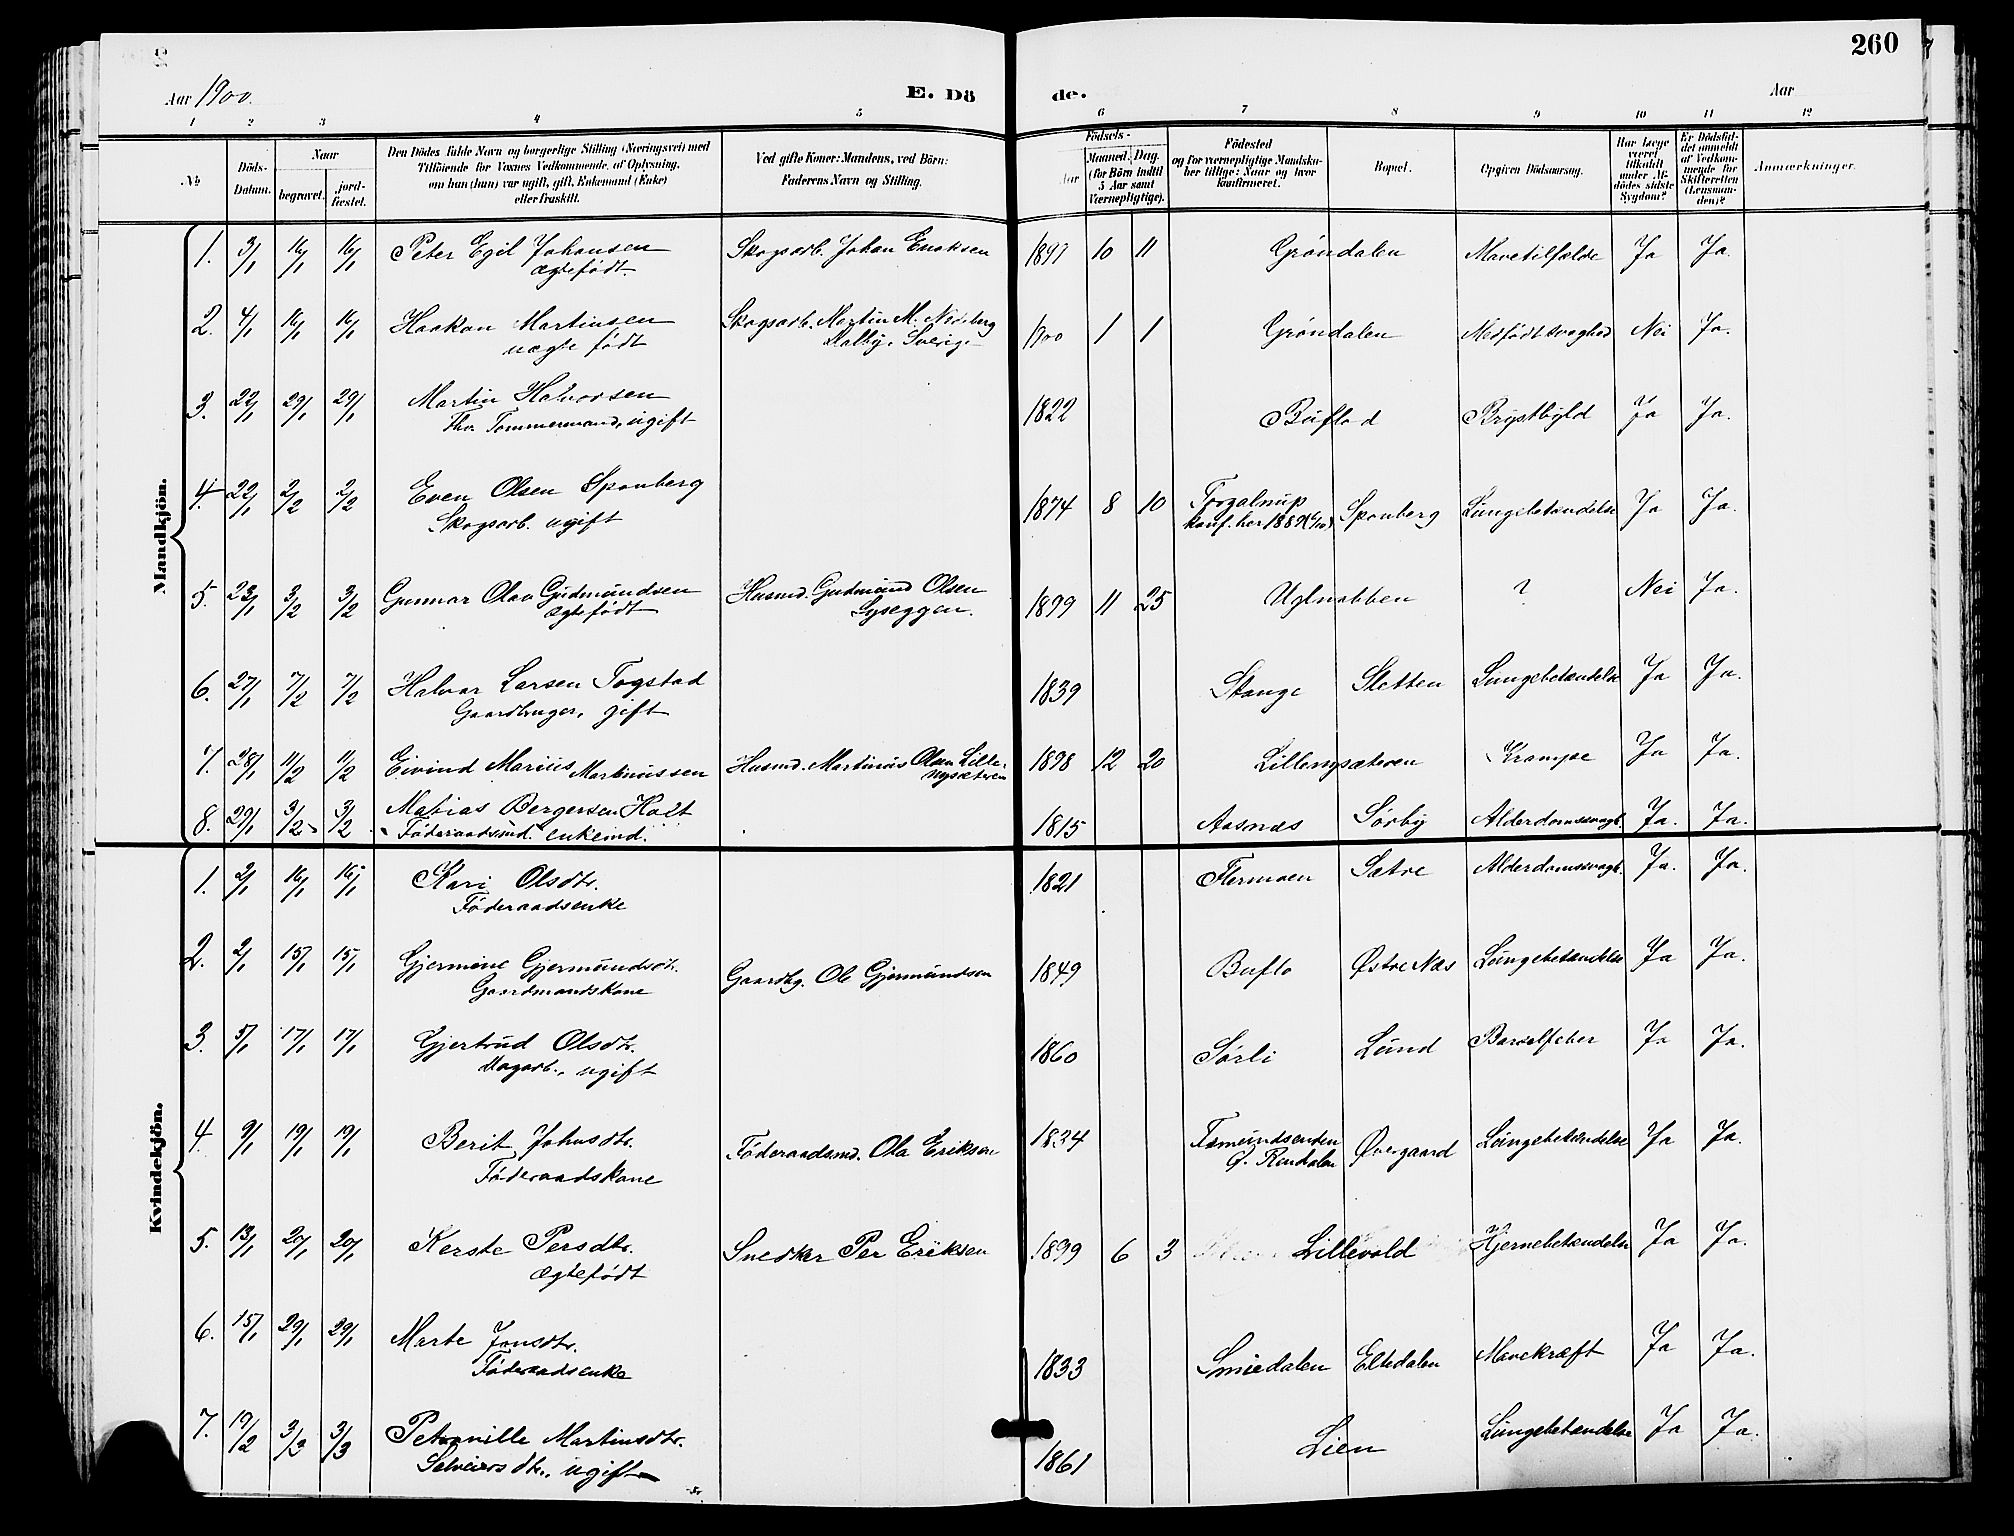 260
Aar 1900.
E. Dö
de.
Aar
1 2 3 4 5 6 7 8 9 10 11 12
№
Döds-Datum.
Naar
begravet.
jord-fæstet.
Den Dödes fulde Navn og borgerlige Stilling (Næringsvei) med
Tilföiende for Voxnes Vedkommende af Oplysning,
om han (hun) var ugift, gift, Enkemand (Enke)
eller fraskilt.
Ved gifte Koner: Mandens, ved Börn:
Faderens Navn og Stilling.
Födsels-
Aar
Maaned. Dag.
(for Börn indtil
5 Aar samt
Værnepligtige).
Födested
og for værnepligtige Mandska-
ber tillige: Naar og hvor
konfirmeret.
Bopæl.
Opgiven Dödsaarsag.
Har Læge
været
tilkaldt
under Af-
dödes sidste
Sygdom?
Er Dödsfal-
det anmeldt
af Vedkom-
mende for
Skifteretten
(Lensman-
den)?
Anmærkninger.
Mandkjön.
1. 3/1 16/1 16/1 Peter Egil Johansen Skogsarb. Johan Eriksen 1897 10 11 Grøndalen Mavetilfælde Ja Ja.
ægtefødt
2. 4/1 16/1 16/1 Haakon Martinsen Skogsarb. Martin M. Nordberg 1900 1 1 Grøndalen Medfødt svaghed Nei Ja.
uægte født Dalby, Sverige
3. 22/1 29/1 29/1 Martin Halvorsen 1822 Buflod Brystbyld Ja Ja.
Tømmermand, ugift
4. 22/1 2/2 2/2 Even Olsen Sponberg 1874 8 10 Sponberg Lungebetændelse Ja Ja.
Skogsarb. ugift konf. her 1889
5. 23/1 3/2 3/2 Gunnar Olav Gudmundsen Husmd. Gudmund Olsen 1899 11 25 Uglnabben ? Nei Ja.
ægtefødt Lyseggen.
6. 27/1 7/2 7/2 Halvor Larsen Togstad 1839 Stange Sletten Lungebetændelse Ja Ja.
Gaardbruger, gift
7. 28/1 11/2 11/2 Eivind Marius Martinussen Husmd. Martinus Olsen Lille- 1898 12 20 Lillenysæteren Krampe Ja Ja.
nysæteren
8. 29/1 3/2 3/2 Mathias Bergersen Holt 1815 Aasnæs Sørby Alderdomssvagh. Ja. Ja.
Føderaadsmd. enkemd.
Kvindekjön.
1. 2/1 16/1 16/1 Kari Olsdtr. 1821 Flermoen Sætre Alderdomssvagh. Ja. Ja.
Føderaadsenke
2. 2/1 15/1 15/1 Gjermine Gjermundsdt. Gaardbg. Ole Gjermundsen 1849 Buflo Østre Næs Lungebetændelse Ja Ja.
Gaardmandskone
3. 5/1 17/1 17/1 Gjertrud Olsdtr. 1860 Sørli Lund Barselfeber Ja Ja.
ugift
4. 9/1 19/1 19/1 Berit Johnsdtr. Føderaadsmd. Ola Eriksen 1834 Fæmundsenden Øvergaard Lungebetændelse Ja Ja.
Føderaadskone Ø. Rendalen
5. 13/1 20/1 20/1 Kerste Persdtr. Snedker Per Eriksen 1899 6 3 Lillevold Hjernebetændelse Ja Ja.
ægtefødt
6. 15/1 29/1 29/1 Marte Jonsdtr. 1833 Smiedalen Eltdalen Mavekræft Ja Ja.
Føderaadsenke
7. 19/2 3/3 3/3 Petronille Martinsdtr. 1861 Lien Lungebetændelse Ja Ja.
Selveiersdtr., ugift